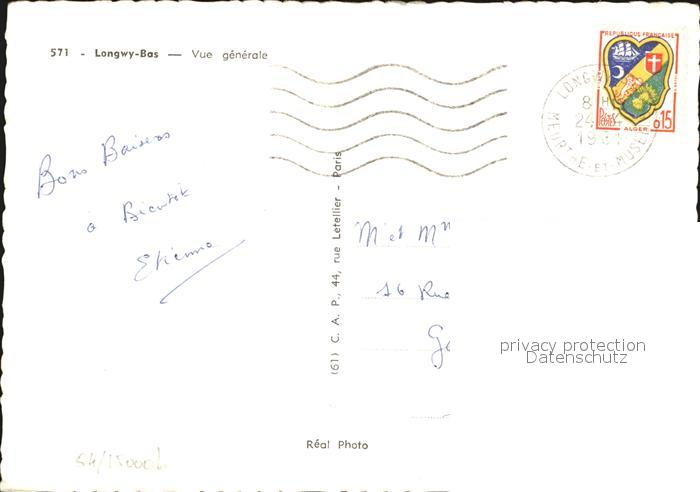 571 - Longwy-Bas — Vue générale
REPUBLIQUE FRANÇAISE
POSTES
0,15
ALGER
LONGWY
8 H
24
1961
MEURTHE-ET-MOSELLE
Bons Baisers
à Bientôt
Etienne
(61) C. A. P., 44, rue Letellier - Paris
M et Mm
16 Rue
privacy protection
Datenschutz
Réal Photo
54/15000L